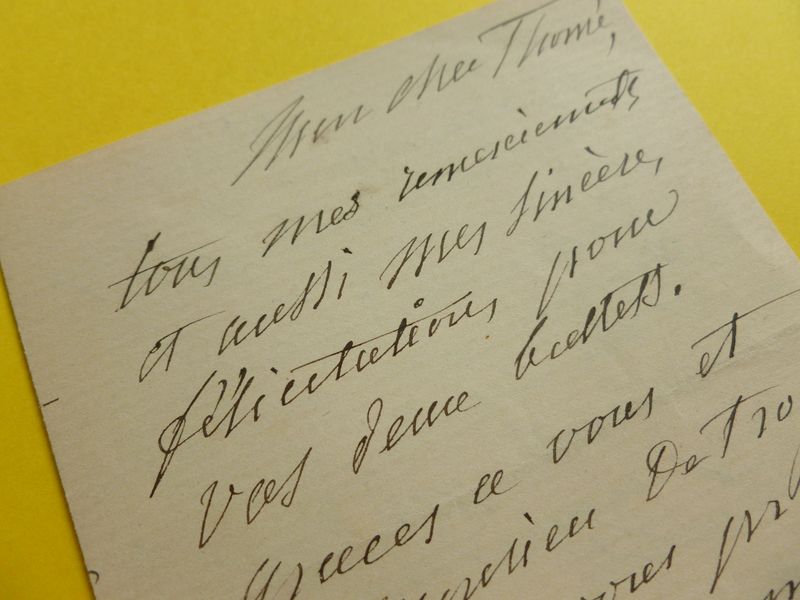 Mon cher Thomé,
tous mes remerciements
et aussi mes sincères
félicitations pour
vos deux ballets.
Grâces a vous et
De Tro